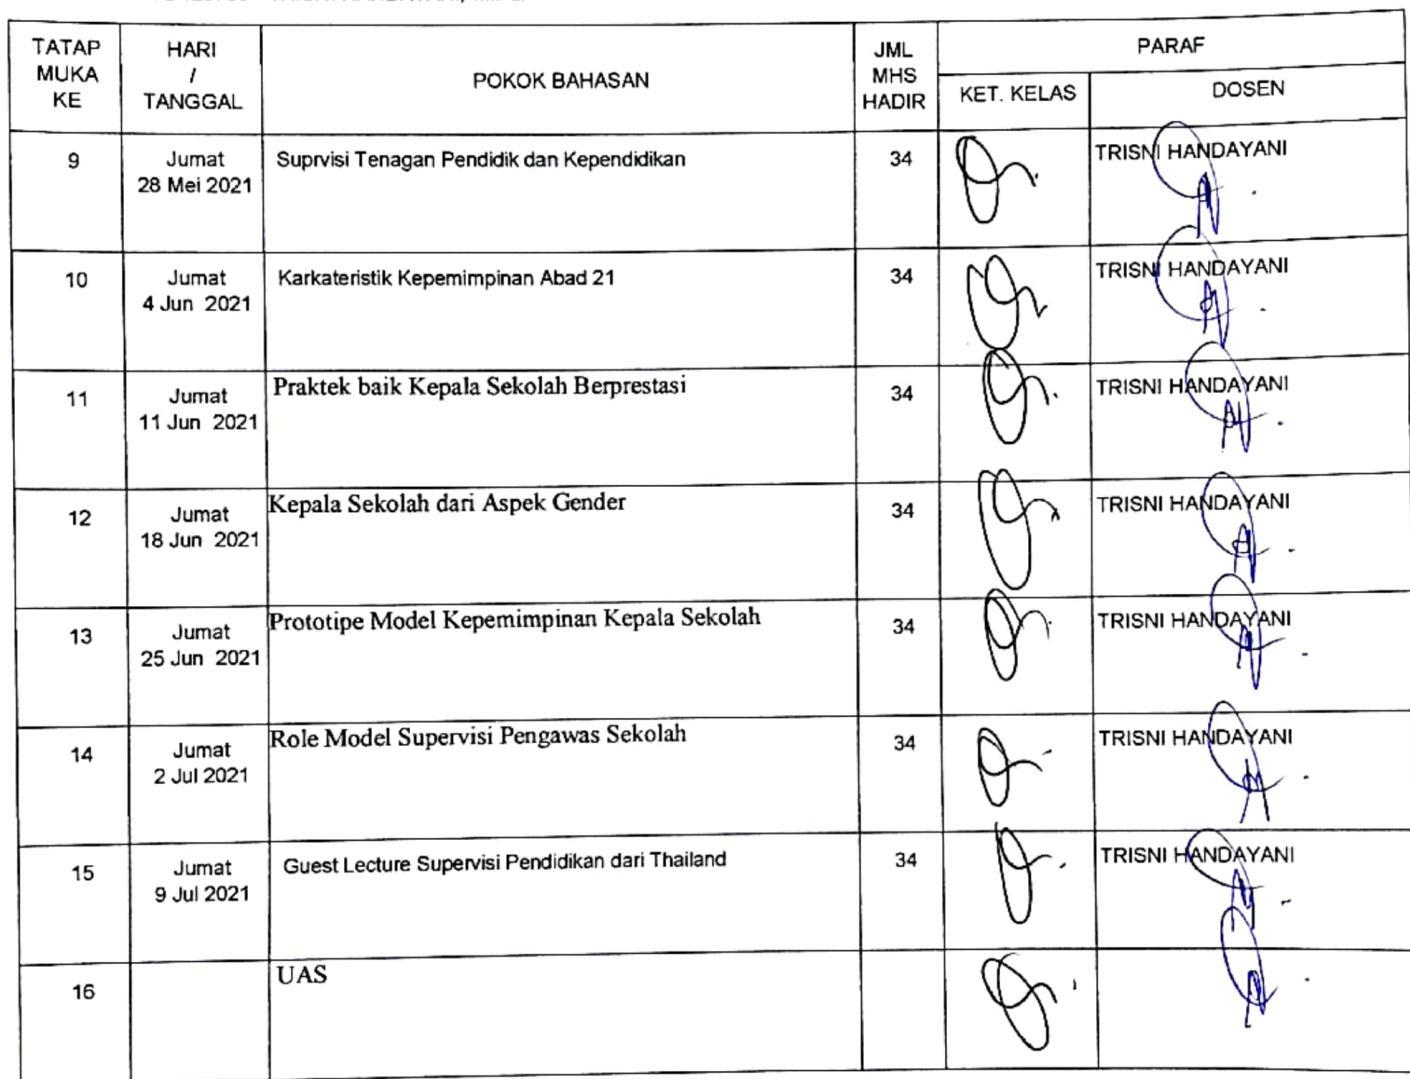 TATAP MUKA KE
HARI / TANGGAL
POKOK BAHASAN
JML MHS HADIR
PARAF
KET. KELAS
DOSEN
9
Jumat
28 Mei 2021
Suprvisi Tenagan Pendidik dan Kependidikan
34
TRISNI HANDAYANI
10
Jumat
4 Jun 2021
Karkateristik Kepemimpinan Abad 21
34
TRISNI HANDAYANI
11
Jumat
11 Jun 2021
Praktek baik Kepala Sekolah Berprestasi
34
TRISNI HANDAYANI
12
Jumat
18 Jun 2021
Kepala Sekolah dari Aspek Gender
34
TRISNI HANDAYANI
13
Jumat
25 Jun 2021
Prototipe Model Kepemimpinan Kepala Sekolah
34
TRISNI HANDAYANI
14
Jumat
2 Jul 2021
Role Model Supervisi Pengawas Sekolah
34
TRISNI HANDAYANI
15
Jumat
9 Jul 2021
Guest Lecture Supervisi Pendidikan dari Thailand
34
TRISNI HANDAYANI
16
UAS